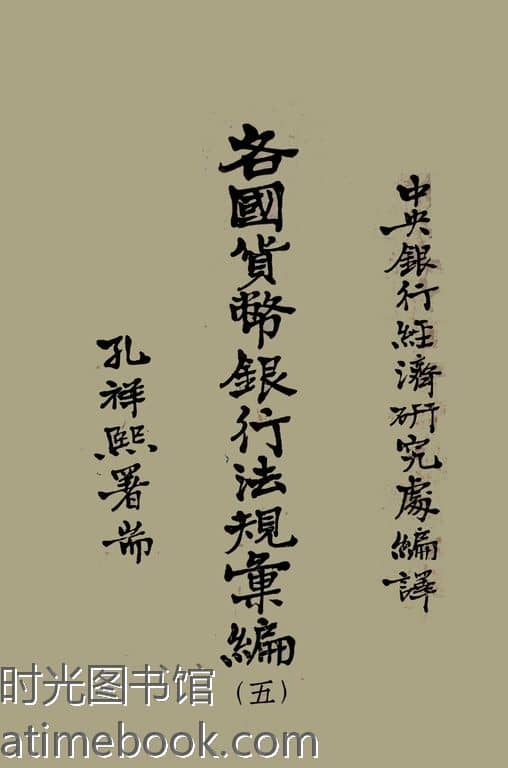 中央銀行經濟研究處編譯
各國貨幣銀行法規彙編
（五）
孔祥熙署耑
时光图书馆
atimebook.com